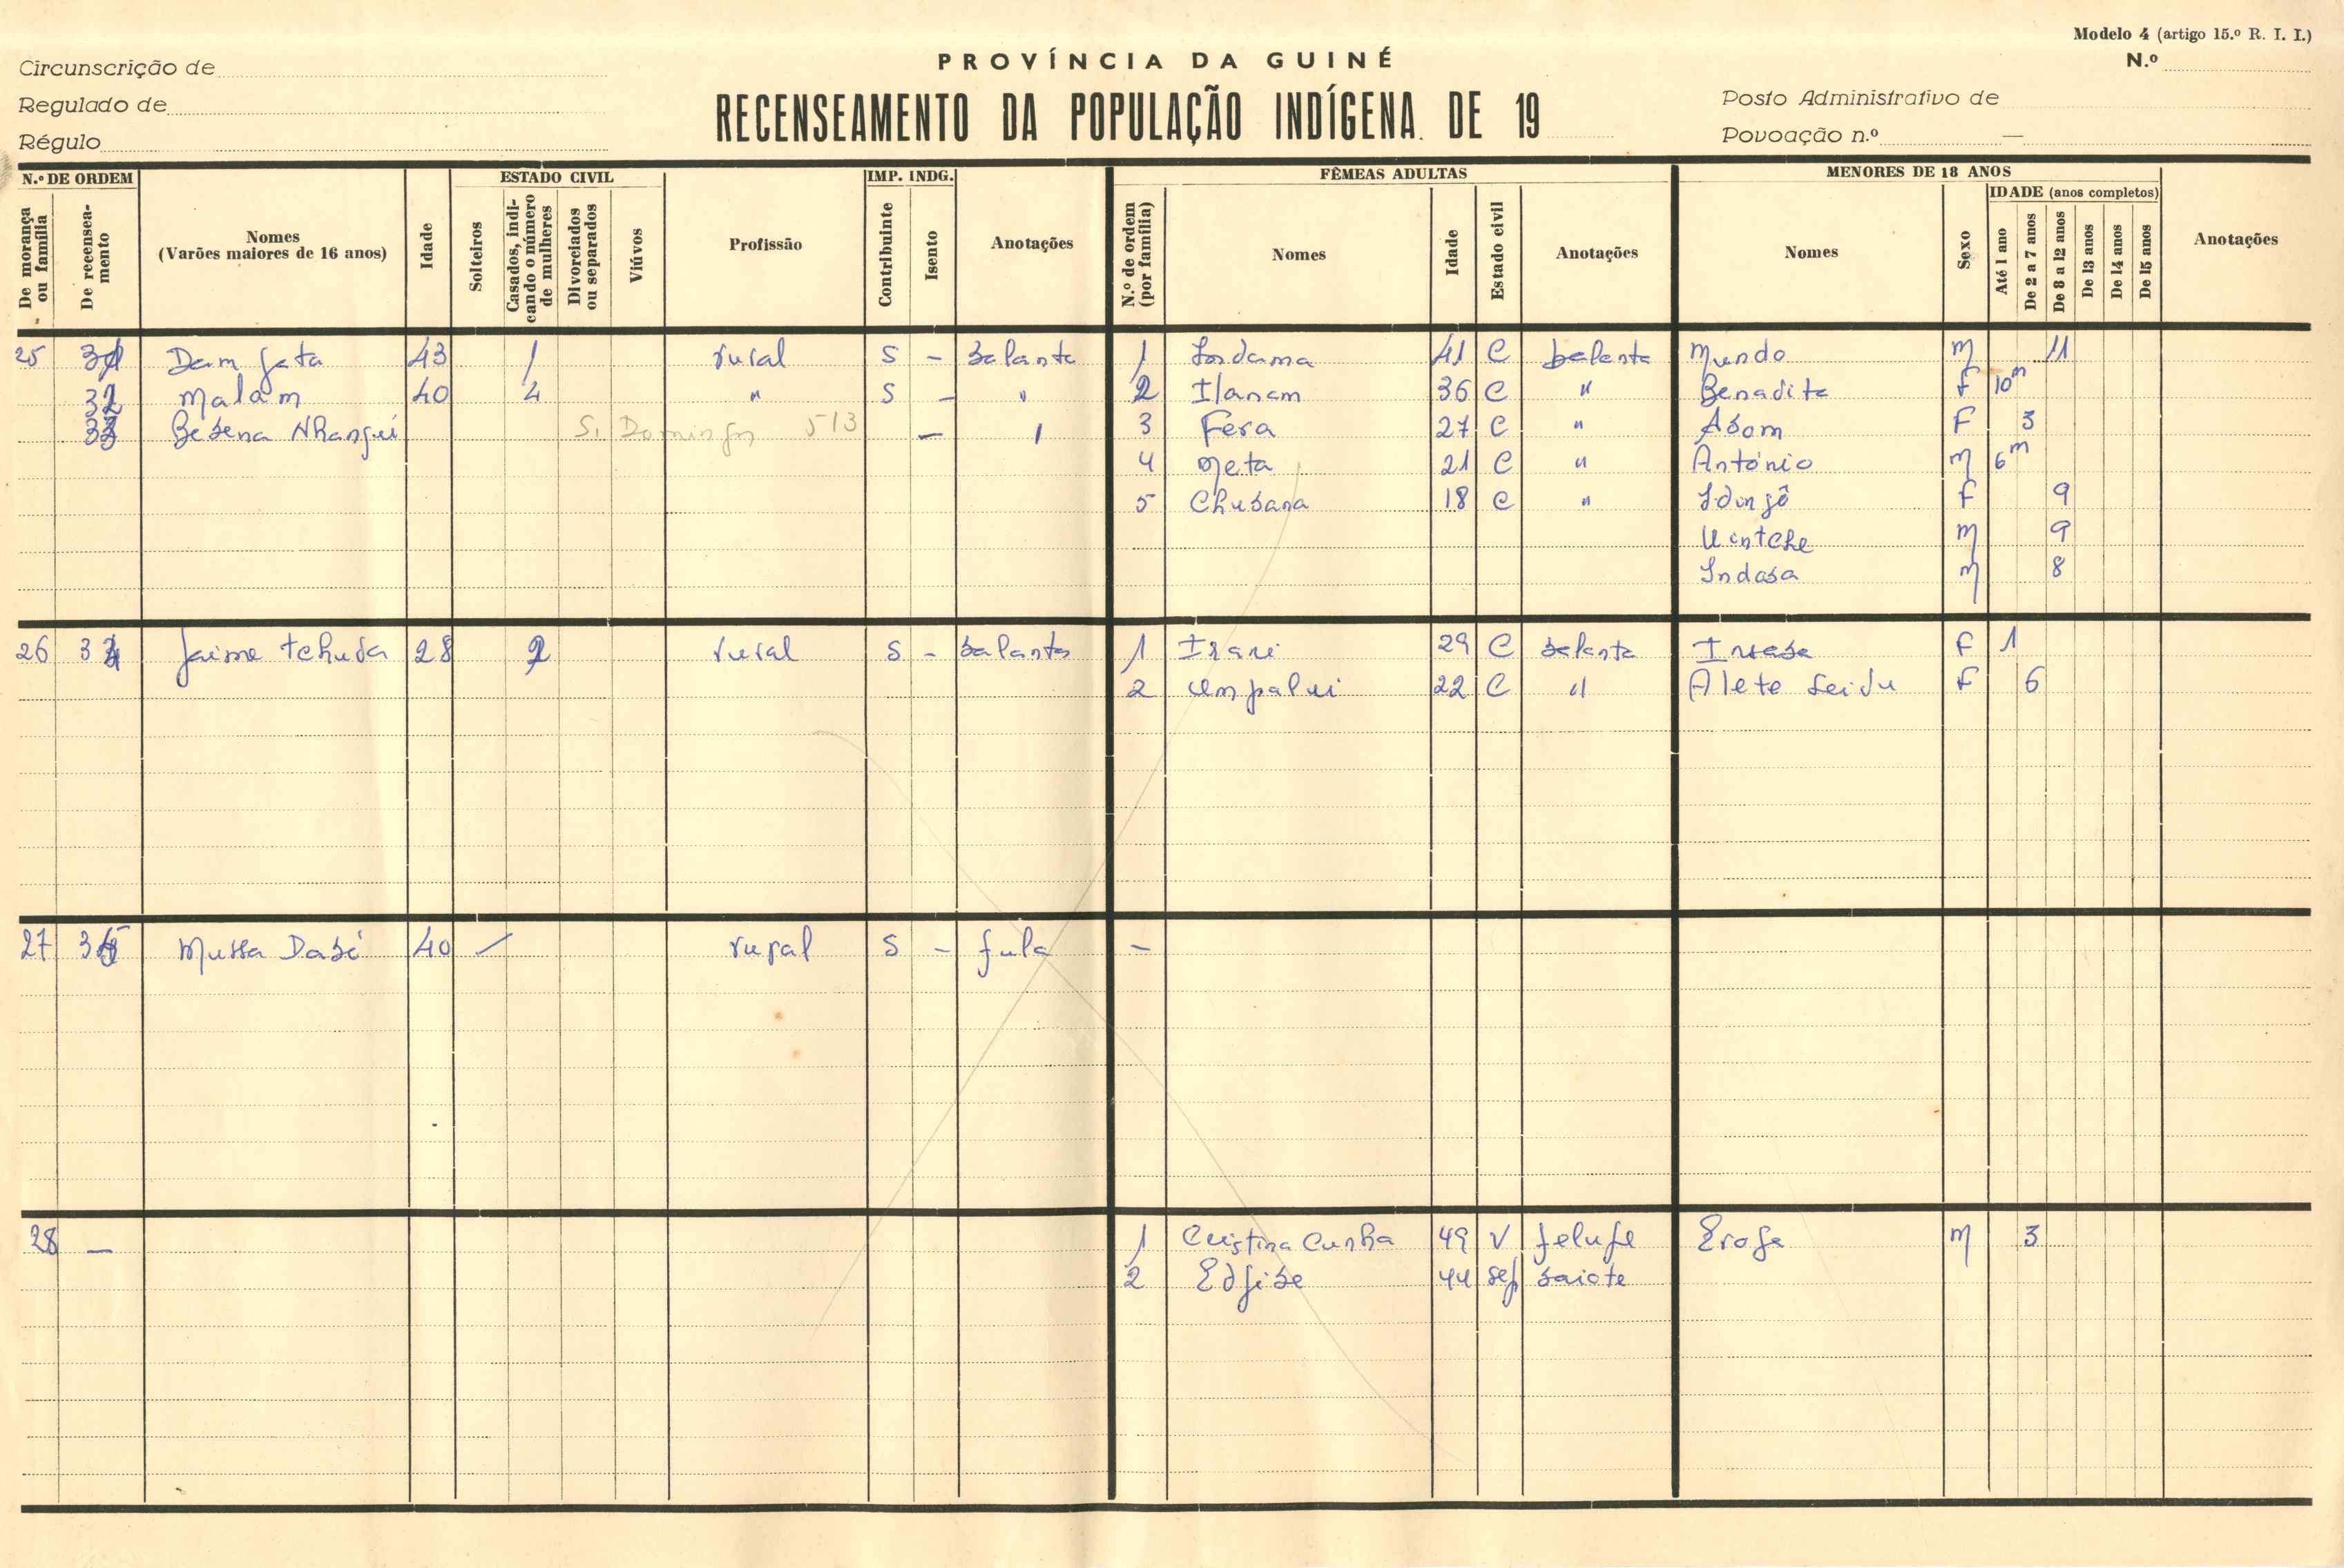 Modelo 4 (artigo 15.º R. I. I.)
PROVÍNCIA DA GUINÉ
N.º
Circunscrição de
Regulado de
Régulo
RECENSEAMENTO DA POPULAÇÃO INDÍGENA DE 19
Posto Administrativo de
Povoação n.º —
N.º DE ORDEM
De morança ou família
De recenseamento
Nomes
(Varões maiores de 16 anos)
Idade
ESTADO CIVIL
Solteiros
Casados, indicando o número de mulheres
Divorciados ou separados
Viúvos
Profissão
IMP. INDG.
Contribuinte
Isento
Anotações
FÊMEAS ADULTAS
N.º de ordem (por família)
Nomes
Idade
Estado civil
Anotações
MENORES DE 18 ANOS
Nomes
Sexo
IDADE (anos completos)
Até 1 ano
De 2 a 7 anos
De 8 a 12 anos
De 13 anos
De 14 anos
De 15 anos
Anotações
25 31 Dam 43 1 rural S - balanta 1 41 C balanta Mundo m 11
32 Malam 40 4 " S - " 2 Ilanam 36 C " Benadita F 10m
33 S. Domingos 513 - 3 Fera 27 C " Abom F 3
4 Meta 21 C " António m 6m
5 Chubana 18 C " F 9
Uintche m 9
Indasa m 8
26 34 Jaime Tchuda 28 2 rural S - balanta 1 Irari 29 C balanta F 1
2 Umpalui 22 C " Alete Seidu F 6
27 35 Mussa Dabé 40 / rural S - fula -
28 — 1 Cristina Cunha 49 V felufe m 3
2 44 sep baiote